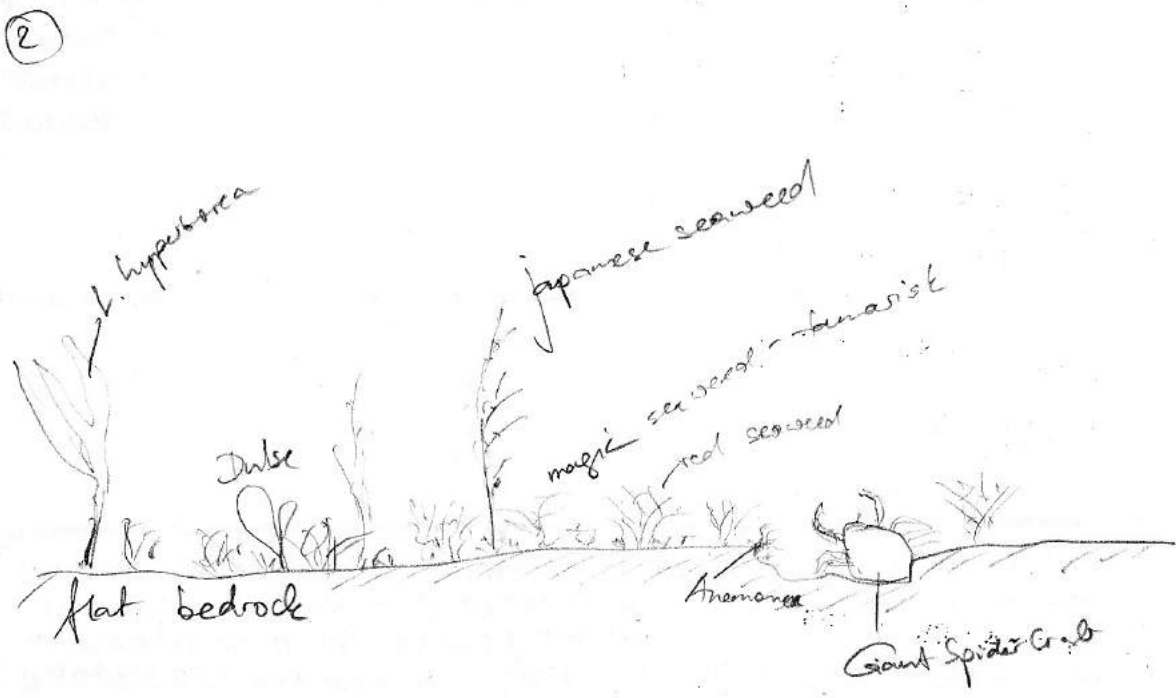 2
L. hyperborea
japanese seaweed
magic seaweed - tamarisk
red seaweed
Dulse
flat bedrock
Anemones
Giant Spider Crab